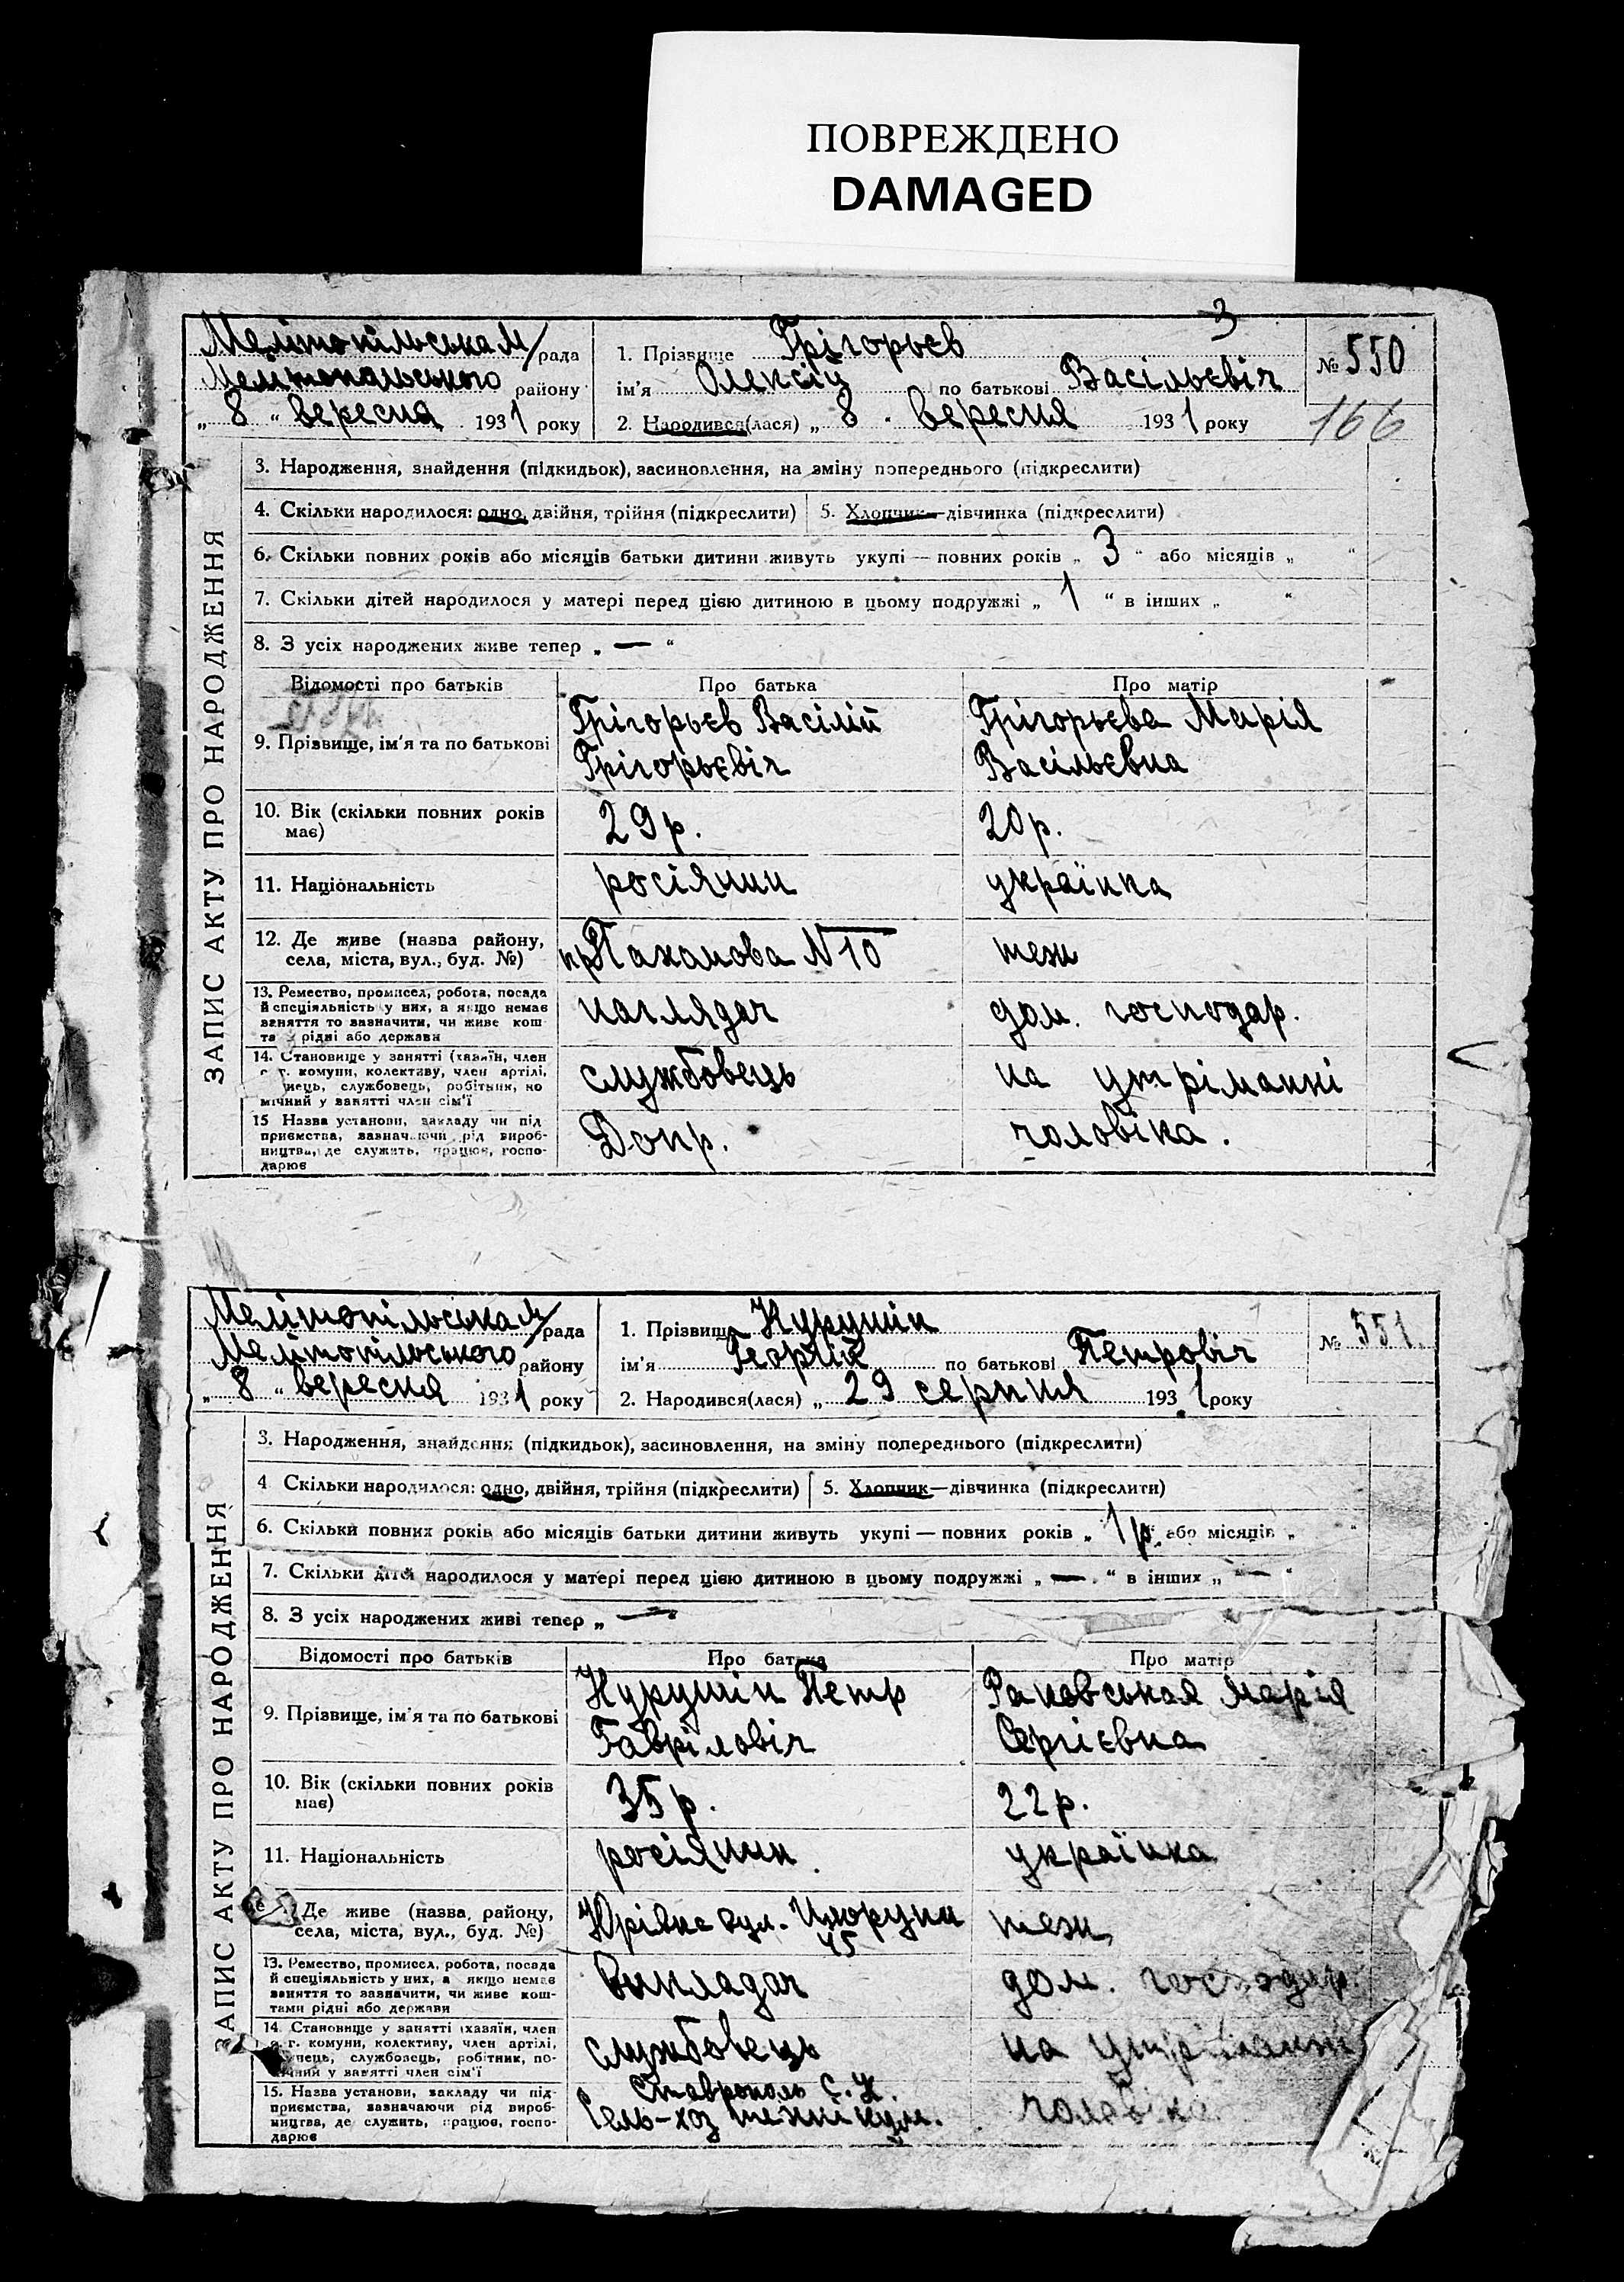 ПОВРЕЖДЕНО
DAMAGED
3
Мелітопільська м/рада
Мелітопольського району
„ 8 “ вересня 1931 року
1. Прізвище Грігорьєв
ім'я Олексій по батькові Васільєвіч
2. Народився(лася) „ 8 “ вересня 1931 року
№ 550
166
ЗАПИС АКТУ ПРО НАРОДЖЕННЯ
3. Народження, знайдення (підкидьок), засиновлення, на зміну попереднього (підкреслити)
4. Скільки народилося: одно, двійня, трійня (підкреслити) 5. Хлопчик—дівчинка (підкреслити)
6. Скільки повних років або місяців батьки дитини живуть укупі — повних років „ 3 “ або місяців „ “
7. Скільки дітей народилося у матері перед цією дитиною в цьому подружжі „ 1 “ в інших „ “
8. З усіх народжених живе тепер „ — “
Відомості про батьків Про батька Про матір
9. Прізвище, ім'я та по батькові
Грігорьєв Васілій
Грігорьєвіч
Грігорьєва Марія
Васільєвна
10. Вік (скільки повних років
має)
29 р.
20 р.
11. Національність росіянин українка
12. Де живе (назва району,
села, міста, вул., буд. №)
№ 10
теж
13. Ремество, промисел, робота, посада
й спеціяльність у них, а якщо немає
заняття то зазначити, чи живе кош
та рідні або держави
наглядач
дом. господар.
14. Становище у занятті (хазяїн, член
г. комуни, колективу, член артілі,
службовець, робітник,
мічний у занятті член сім'ї
службовець
на утріманні
15 Назва установи, закладу чи під
приємства, зазначаючи рід вироб-
ництва, де служить, працює, госпо-
дарює
Допр.
чоловіка.
Мелітопільська м/рада
Мелітопільського району
„ 8 “ вересня 1931 року
1. Прізвище
ім'я Георгій по батькові Петровіч
2. Народився(лася) „ 29 серпня 1931 року
№ 551
ЗАПИС АКТУ ПРО НАРОДЖЕННЯ
3. Народження, знайдення (підкидьок), засиновлення, на зміну попереднього (підкреслити)
4 Скільки народилося: одно, двійня, трійня (підкреслити) 5. Хлопчик—дівчинка (підкреслити)
6. Скільки повних років або місяців батьки дитини живуть укупі — повних років „ 1 р. “ або місяців „ “
7. Скільки дітей народилося у матері перед цією дитиною в цьому подружжі „ — “ в інших „ — “
8. З усіх народжених живі тепер „ —
Відомості про батьків Про батька Про матір
9. Прізвище, ім'я та по батькові
Петр
Гавріловіч
Раковськая Марія
Сергієвна
10. Вік (скільки повних років
має)
35 р.
22 р.
11. Національність росіянин українка
Де живе (назва району,
села, міста, вул., буд. №)
вул.
45
теж
13. Ремество, промисел, робота, посада
й спеціяльність у них, а якщо немає
заняття то зазначити, чи живе кош-
тами рідні або держави
Викладач
дом. господар.
14. Становище у занятті (хазяїн, член
г. комуни, колективу, член артілі,
службовець, робітник, по-
мічний у занятті член сім'ї
службовець
на утріманні
15. Назва установи, закладу чи під-
приємства, зазначаючи рід вироб-
ництва, де служить, працює, госпо-
дарює
Ставрополь С. К.
Сель-хоз технікум.
чоловіка